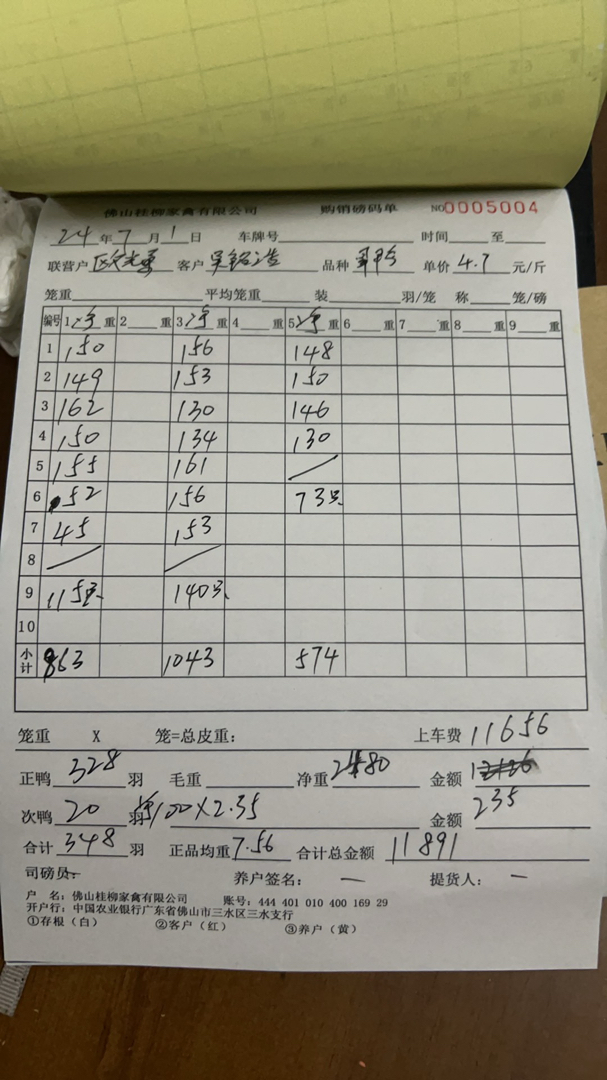 佛山桂柳家禽有限公司 购销磅码单 NO0005004
24年7月1日 车牌号 时间 至
联营户 区 客户 吴铭浩 品种 单价 4.7 元/斤
笼重 平均笼重 装 羽/笼 称 笼/磅
编号 1净重 2 重 3净重 4 重 5净重 6 重 7 重 8 重 9 重
1 150 156 148
2 149 153 150
3 162 130 146
4 150 134 130
5 155 161
6 52 156 73只
7 45 153
8
9 115只 140只
10
小计 863 1043 574
笼重 X 笼=总皮重: 上车费 11656
正鸭 328 羽 毛重 净重 2480 金额
次鸭 20 羽 净100×2.35 金额 235
合计 348 羽 正品均重 7.56 合计总金额 11891
司磅员: 养户签名: 提货人:
户 名: 佛山桂柳家禽有限公司 账号: 444 401 010 400 169 29
开户行: 中国农业银行广东省佛山市三水区三水支行
①存根（白） ②客户（红） ③养户（黄）